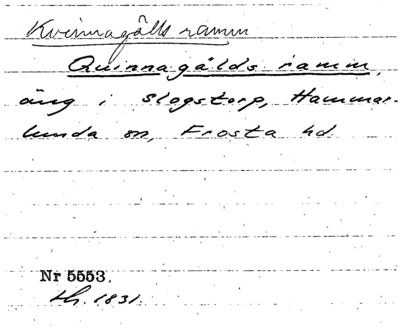 Kvinnagålls ramm
Quinnagålds ramm,
äng i Slogstorp, Hammar-
lunda sn, Frosta hd.
Nr 5553.
lh. 1831.